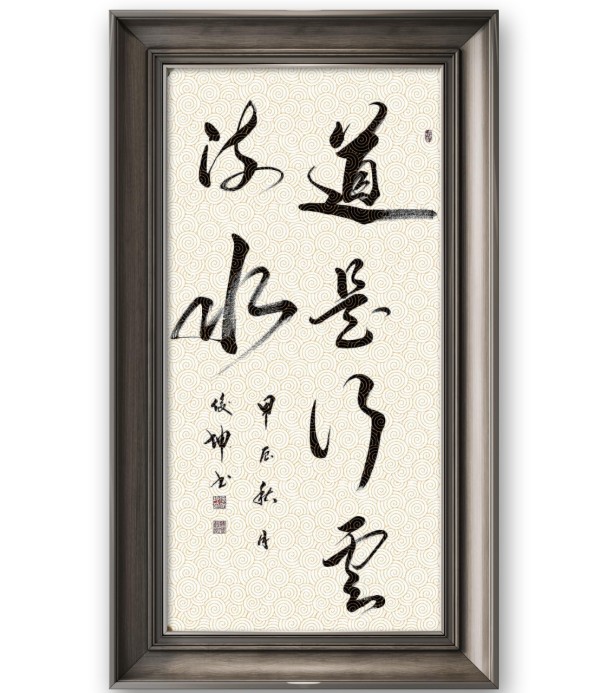 道是行雲
流水
甲辰秋月
俊坤书